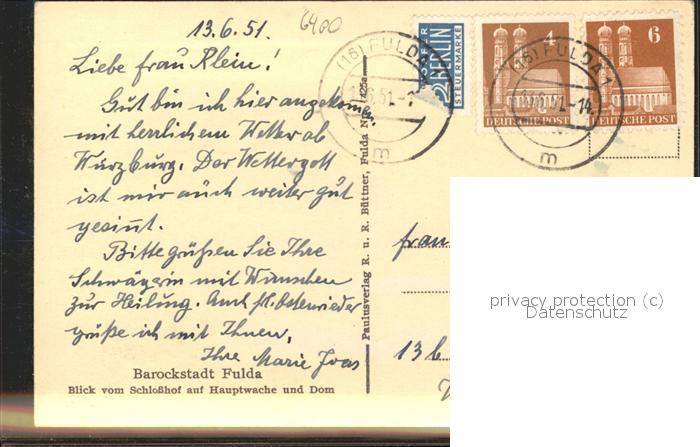 13.6.51.
6400
Liebe Frau Klein!
Gut bin ich hier angekommen
mit herrlichem Wetter ab
Würzburg. Der Wettergott
ist mir auch weiter gut
gesinnt.
Bitte grüßen Sie Ihre
Schwägerin mit Wünschen
zur Heilung. Auch
grüße ich mit Ihnen,
Ihre Marie
Barockstadt Fulda
Blick vom Schloßhof auf Hauptwache und Dom
Paulusverlag R. u. R. Büttner, Fulda
2 BERLIN
STEUERMARKE
(16) FULDA
m
4
DEUTSCHE POST
(16) FULDA 1
m
6
DEUTSCHE POST
Frau
13b
privacy protection (c)
Datenschutz